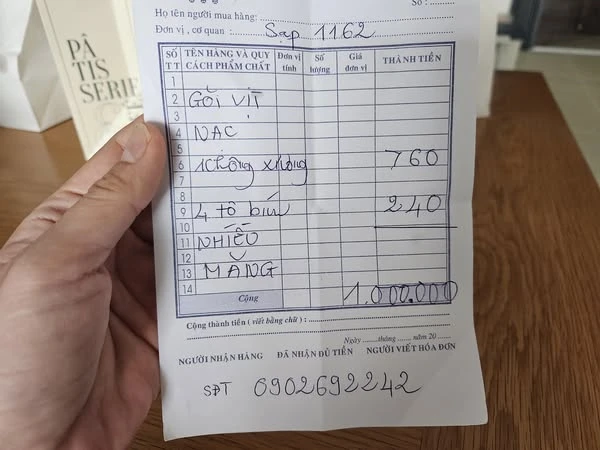 PÂ
TIS
SERIE
Số :
Họ tên người mua hàng:
Đơn vị, cơ quan : Sạp 1162
SỐ TT TÊN HÀNG VÀ QUY CÁCH PHẨM CHẤT Đơn vị tính Số lượng Giá đơn vị THÀNH TIỀN
1
2 GỎI VỊT
3
4 NẠC
5
6 760
7
8
9 4 tô bún 240
10
11 NHIỀU
12
13 MĂNG
14
Cộng 1.000.000
Cộng thành tiền ( viết bằng chữ ) :
Ngày ......tháng ...... năm 20 ....
NGƯỜI NHẬN HÀNG ĐÃ NHẬN ĐỦ TIỀN NGƯỜI VIẾT HÓA ĐƠN
SĐT 0902692242